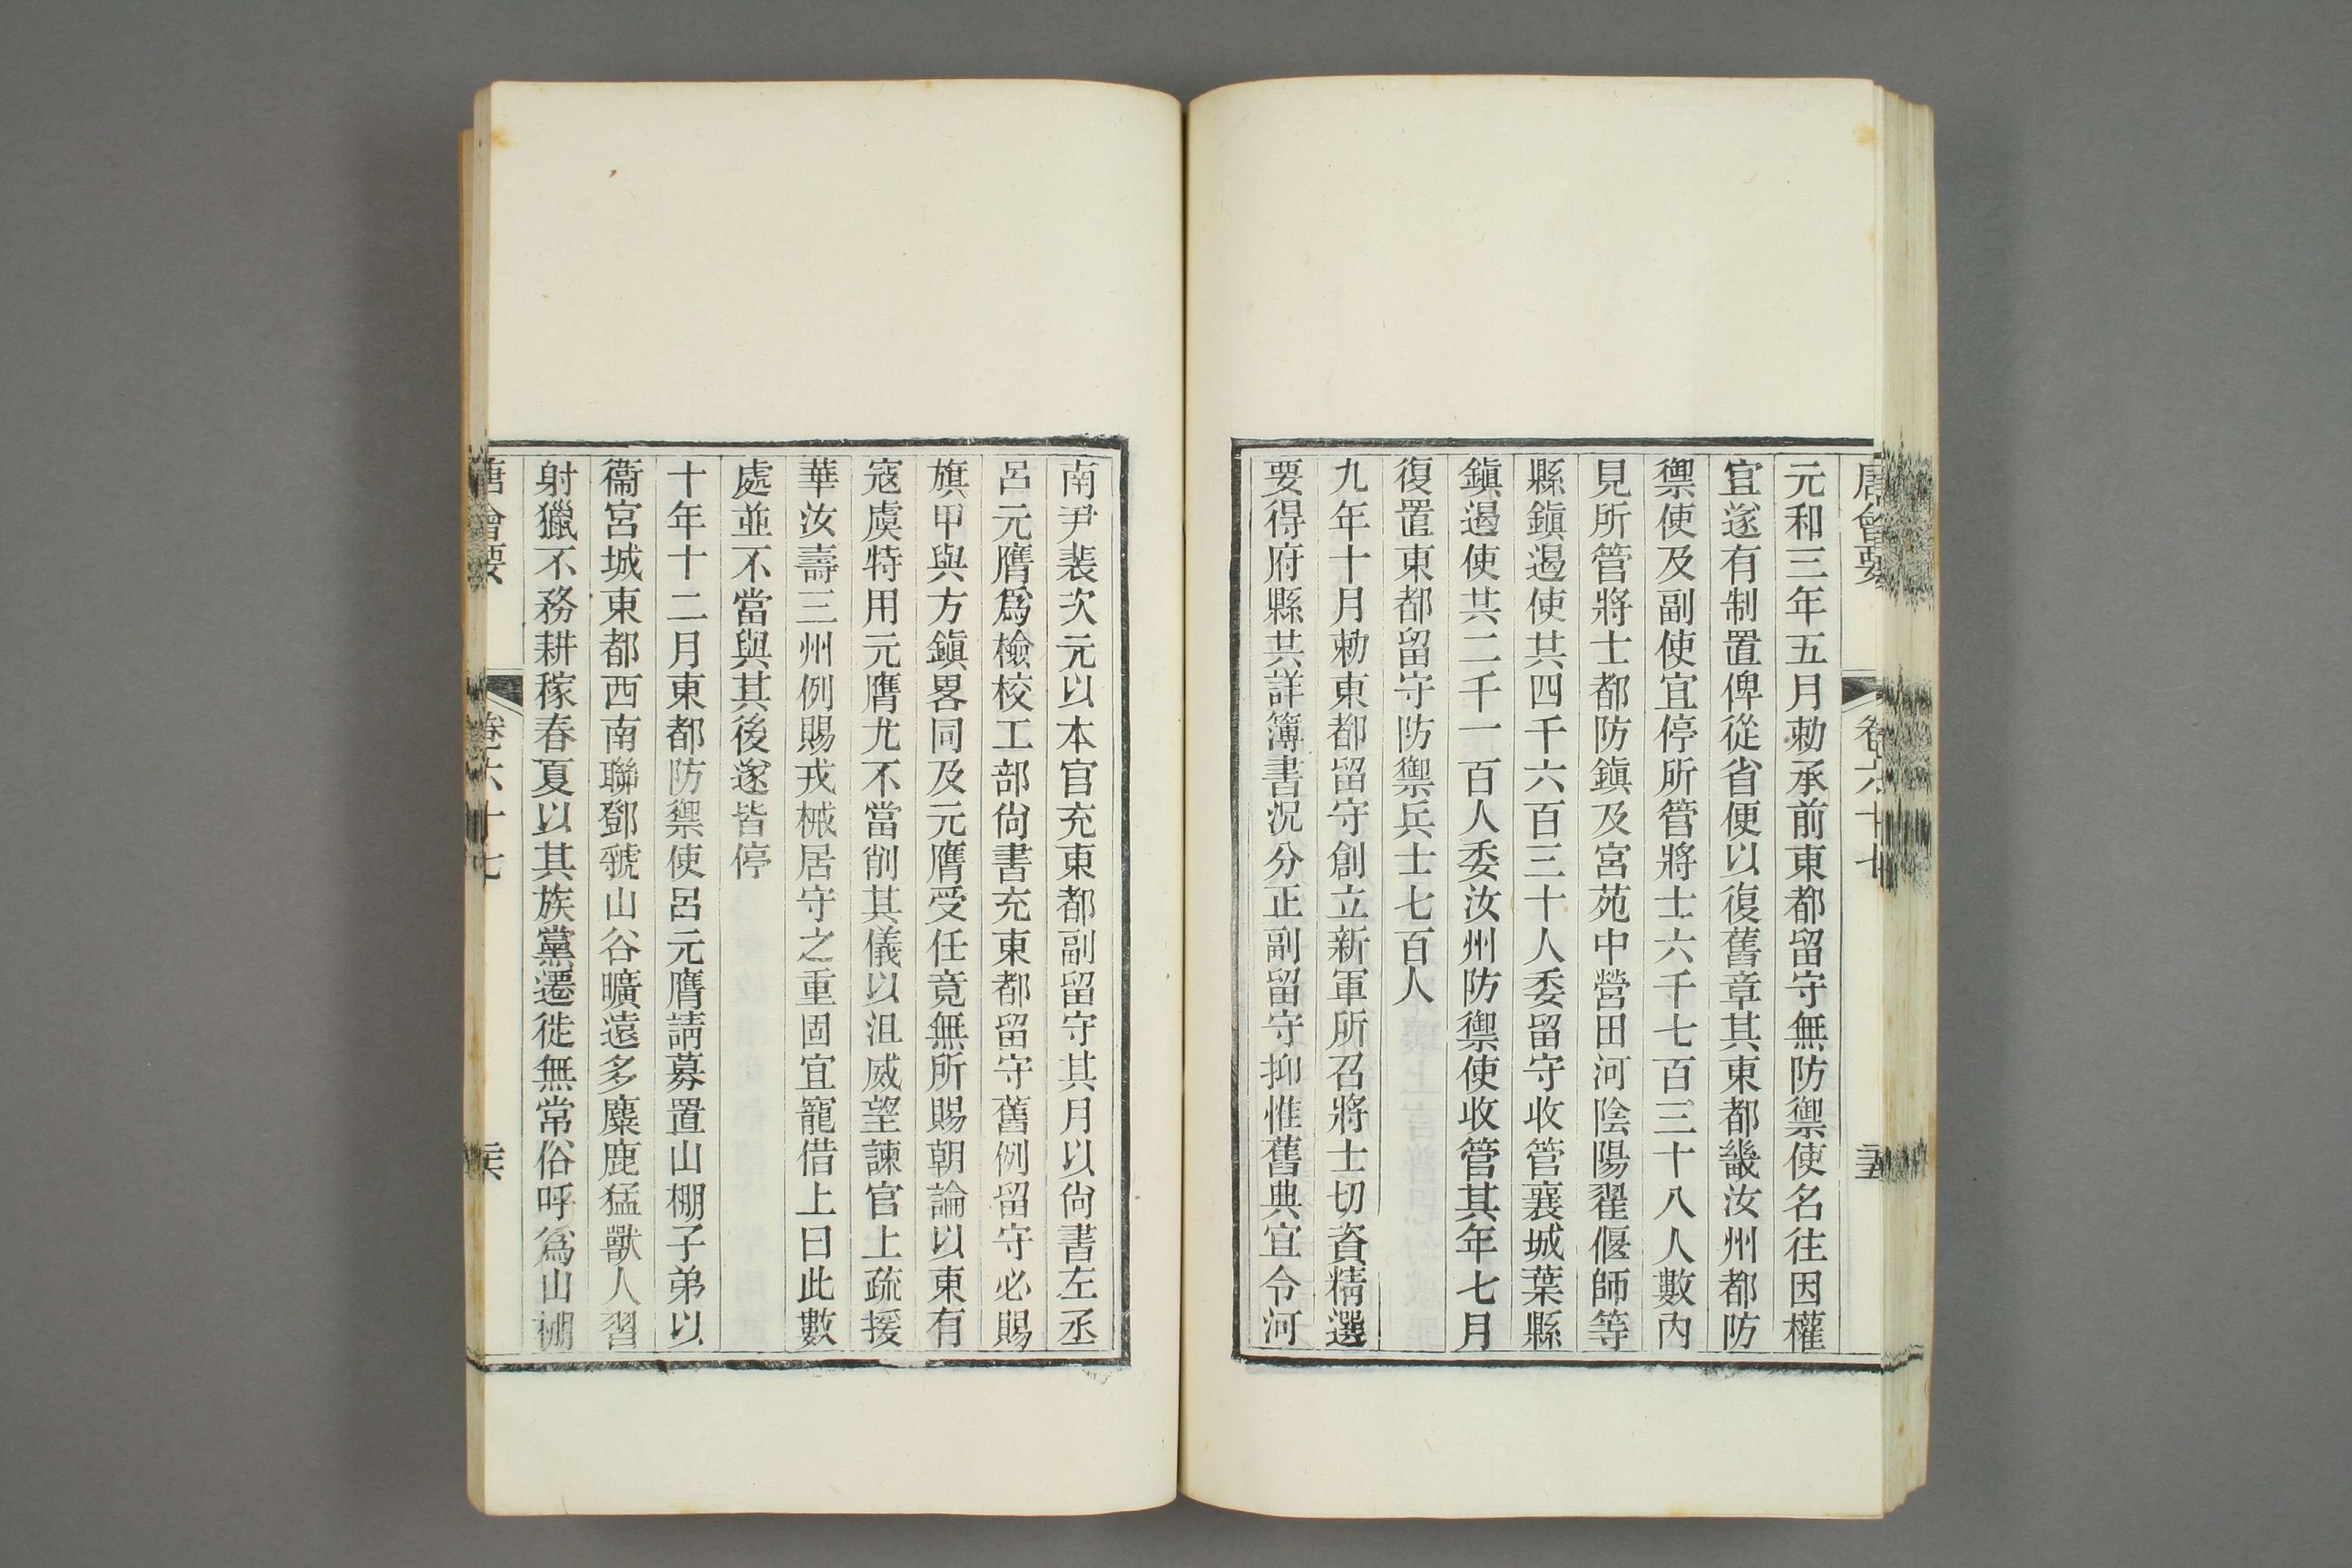 唐會要 卷六十七
元和三年五月勅承前東都留守無防禦使名往因權
宜遂有制置俾從省便以復舊章其東都畿汝州都防
禦使及副使宜停所管將士六千七百三十八人數內
見所管將士都防鎭及宮苑中營田河陰陽翟偃師等
縣鎭遏使共四千六百三十人委留守收管襄城葉縣
鎭遏使共二千一百人委汝州防禦使收管其年七月
復置東都留守防禦兵士七百人
九年十月勅東都留守創立新軍所召將士切資精選
要得府縣共詳簿書況分正副留守抑惟舊典宜令河
南尹裴次元以本官充東都副留守其月以尙書左丞
呂元膺爲檢校工部尙書充東都留守舊例留守必賜
旗甲與方鎭畧同及元膺受任竟無所賜朝論以東有
寇虞特用元膺尤不當削其儀以沮威望諫官上疏援
華汝壽三州例賜戎械居守之重固宜寵借上曰此數
處並不當與其後遂皆停
十年十二月東都防禦使呂元膺請募置山棚子弟以
衞宮城東都西南聯鄧虢山谷曠遠多麋鹿猛獸人習
射獵不務耕稼春夏以其族黨遷徙無常俗呼爲山棚
唐會要 卷六十七